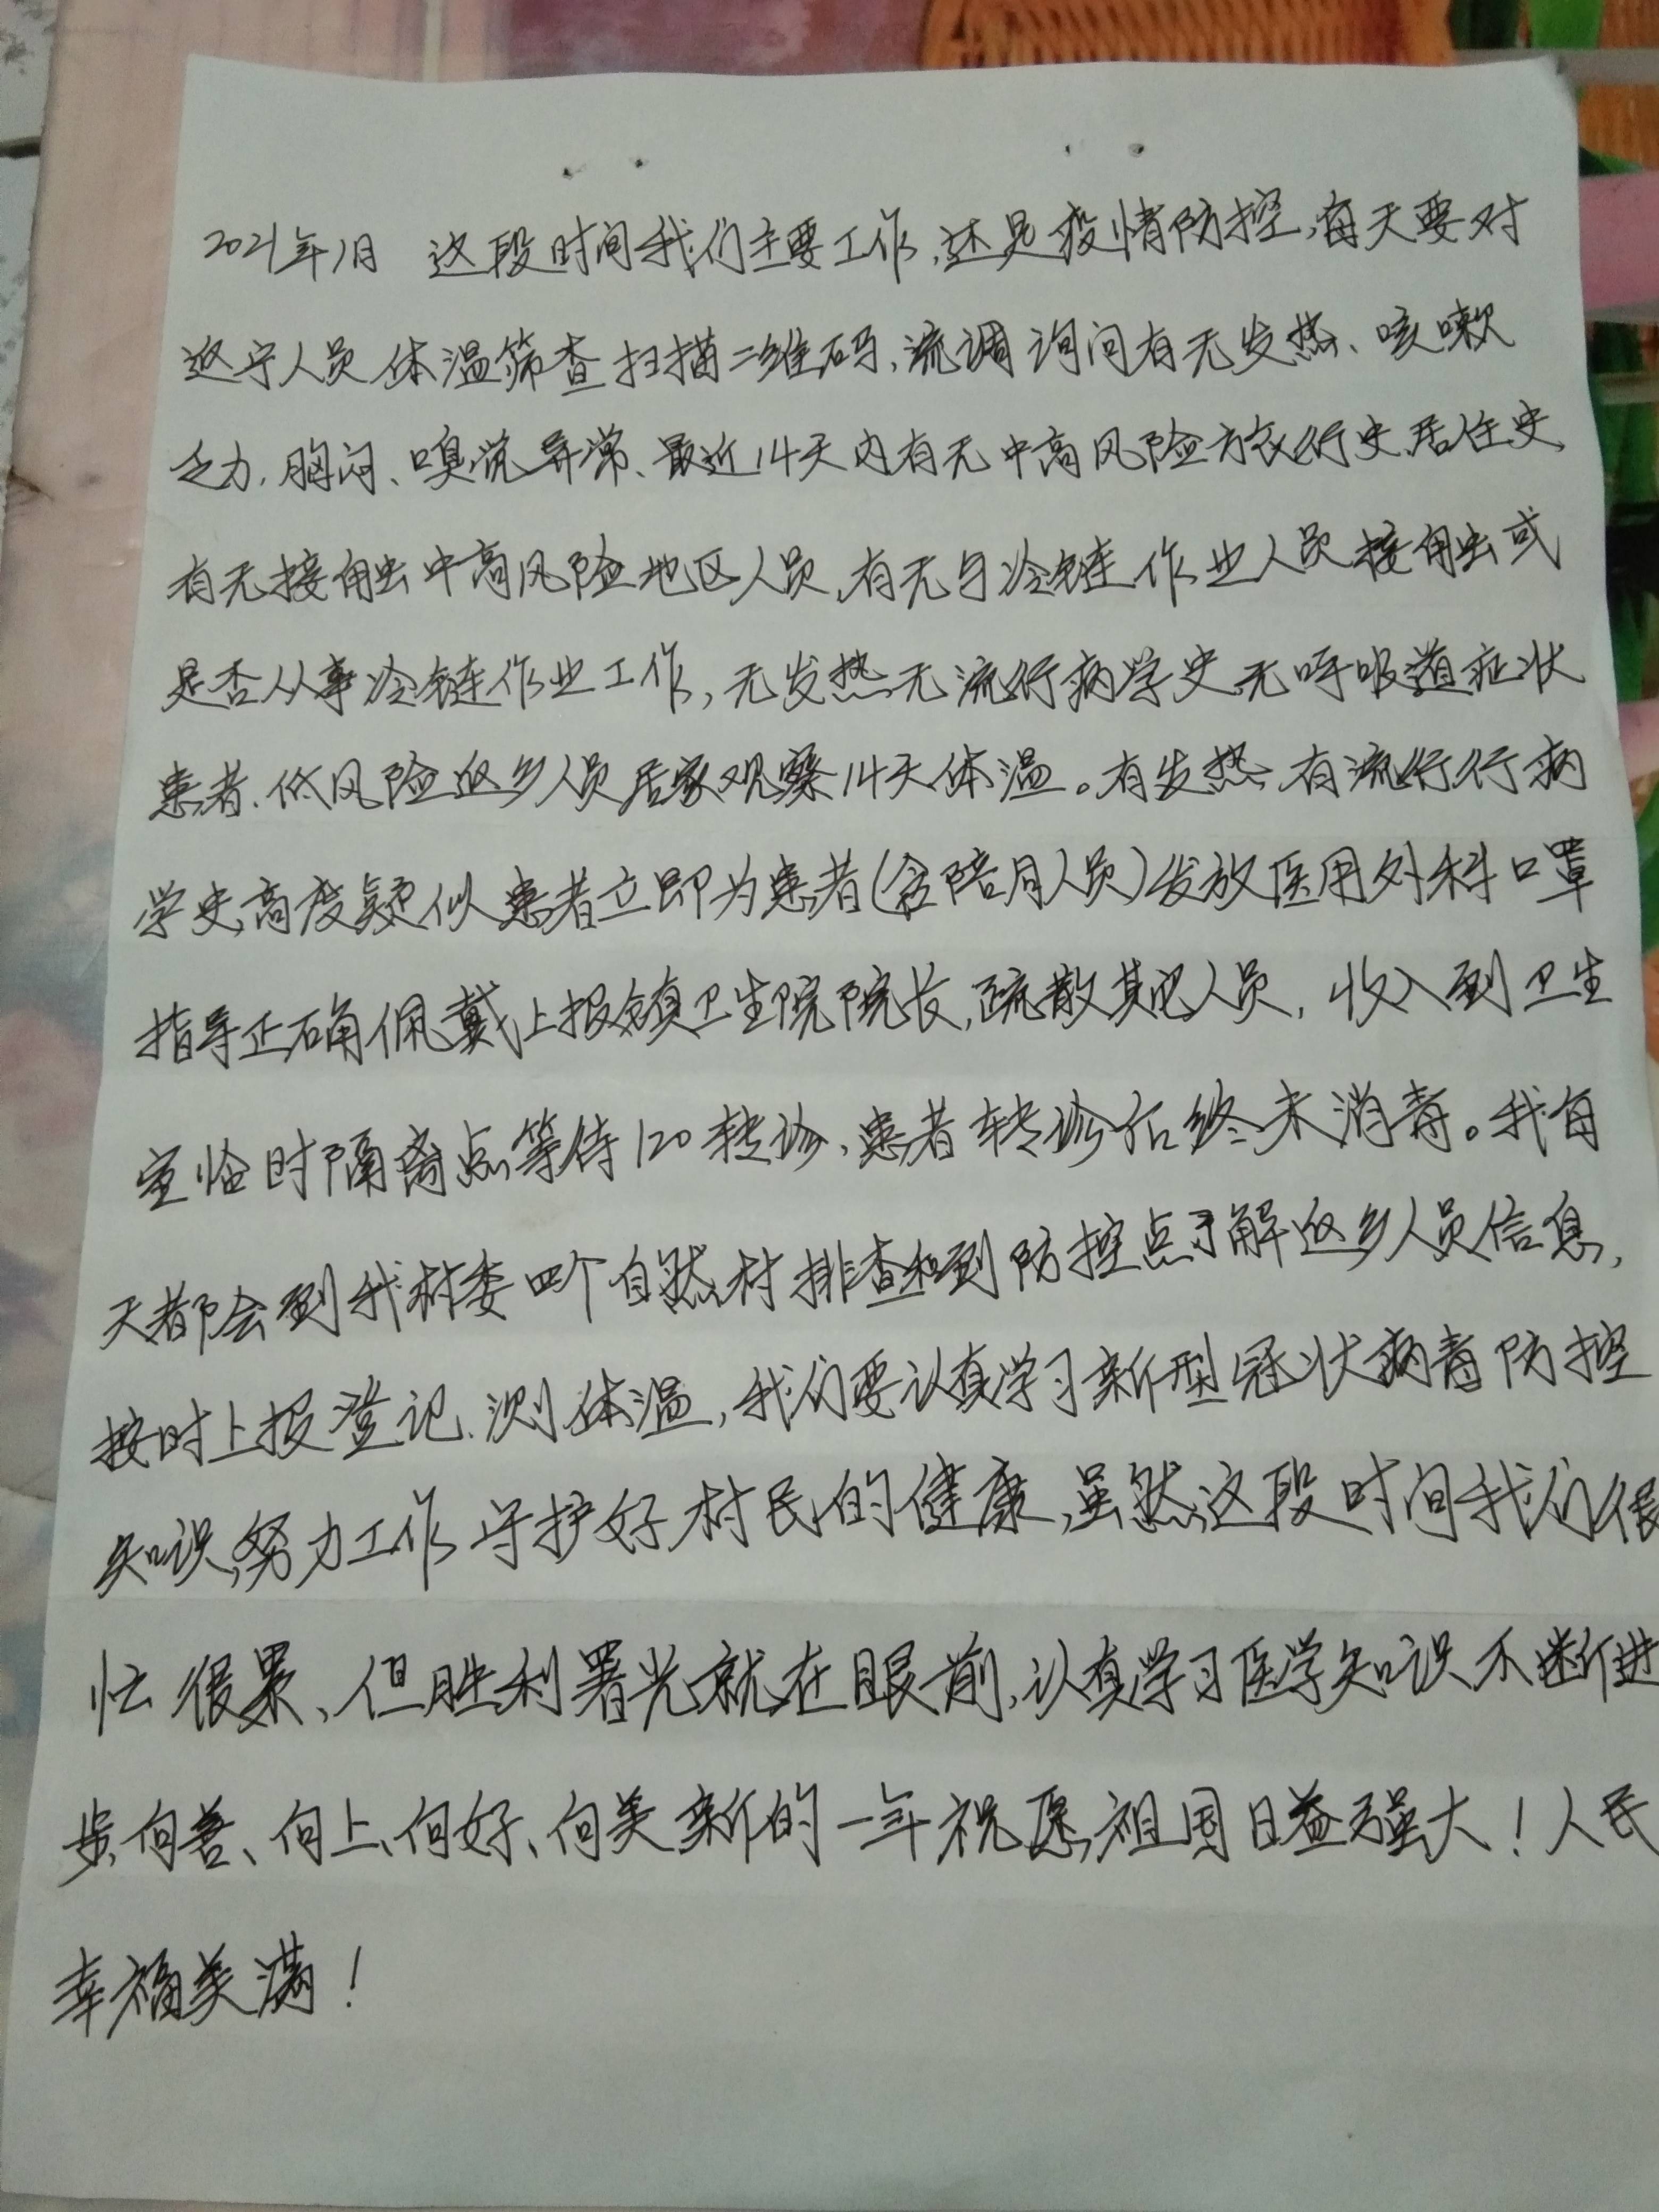 2021年1月 这段时间我们主要工作,还是疫情防控,每天要对
返宁人员体温筛查扫描二维码,流调询问有无发热、咳嗽
乏力,胸闷、嗅觉异常、最近14天内有无中高风险旅行史居住史,
有无接触中高风险地区人员,有无与冷链作业人员接触或
是否从事冷链作业工作,无发热无流行病学史无呼吸道症状
患者、低风险返乡人员居家观察14天体温。有发热、有流行行病
学史,高度疑似患者立即为患者(含陪同人员)发放医用外科口罩
指导正确佩戴上报镇卫生院院长,疏散其他人员,收入到卫生
室临时隔离点等待120转诊、患者转诊后终末消毒。我每
天都会到我村委四个自然村排查和到防控点了解返乡人员信息,
按时上报登记、测体温,我们要认真学习新型冠状病毒防控
知识,努力工作守护好村民的健康,虽然这段时间我们很
忙很累、但胜利署光就在眼前,认真学习医学知识不断进
步,向善、向上、向好、向美新的一年祝愿祖国日益强大!人民
幸福美满!